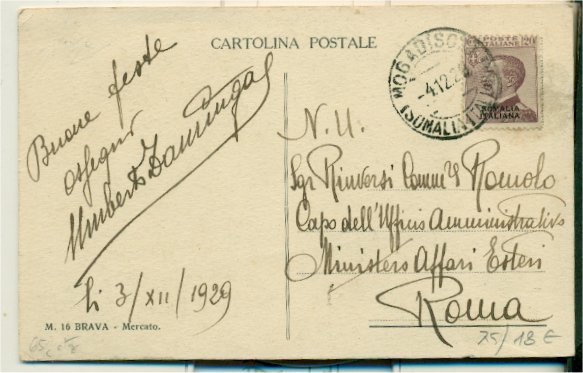 CARTOLINA POSTALE
Buone feste
ossequi
Umberto
li 3/XII/1929
M. 16 BRAVA - Mercato.
MOGADISCIO
4.12.29
(SOMALIA
POSTE
ITALIANE
SOMALIA
ITALIANA
N. U.
Sgr Rinversi Comm. Romolo
Capo dell'Ufficio Amministrativo
Ministero Affari Esteri
Roma
75/18 €